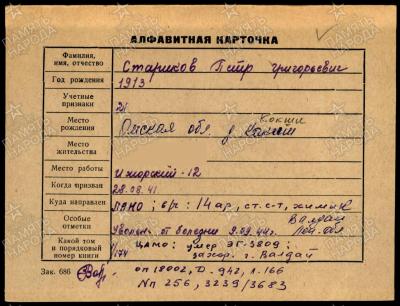 АЛФАВИТНАЯ КАРТОЧКА
Фамилия, имя, отчество Стариков Петр Григорьевич
Год рождения 1913
Учетные признаки 21
Место рождения Омская обл. д. Кокши
Место жительства
Место работы Ижорский-12
Когда призван 28.08.41
Куда направлен в/с: 14 ар, ст. с-т, химик
Особые отметки Уволен по болезни 9.09.44г. Валдай
Какой том и порядковый номер книги 1/174 ЦАМО: умер ЭГ-3809; захор. г. Валдай
Зак. 686 оп 18002, D-942, л. 166
Nп 256, 3239/3683
ПАМЯТЬ НАРОДА